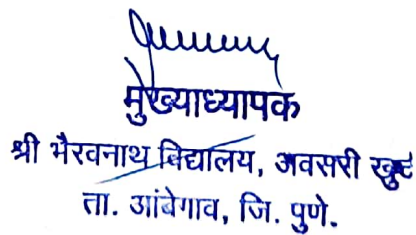 मुख्याध्यापक
श्री भैरवनाथ विद्यालय, अवसरी खुर्द
ता. आंबेगाव, जि. पुणे.